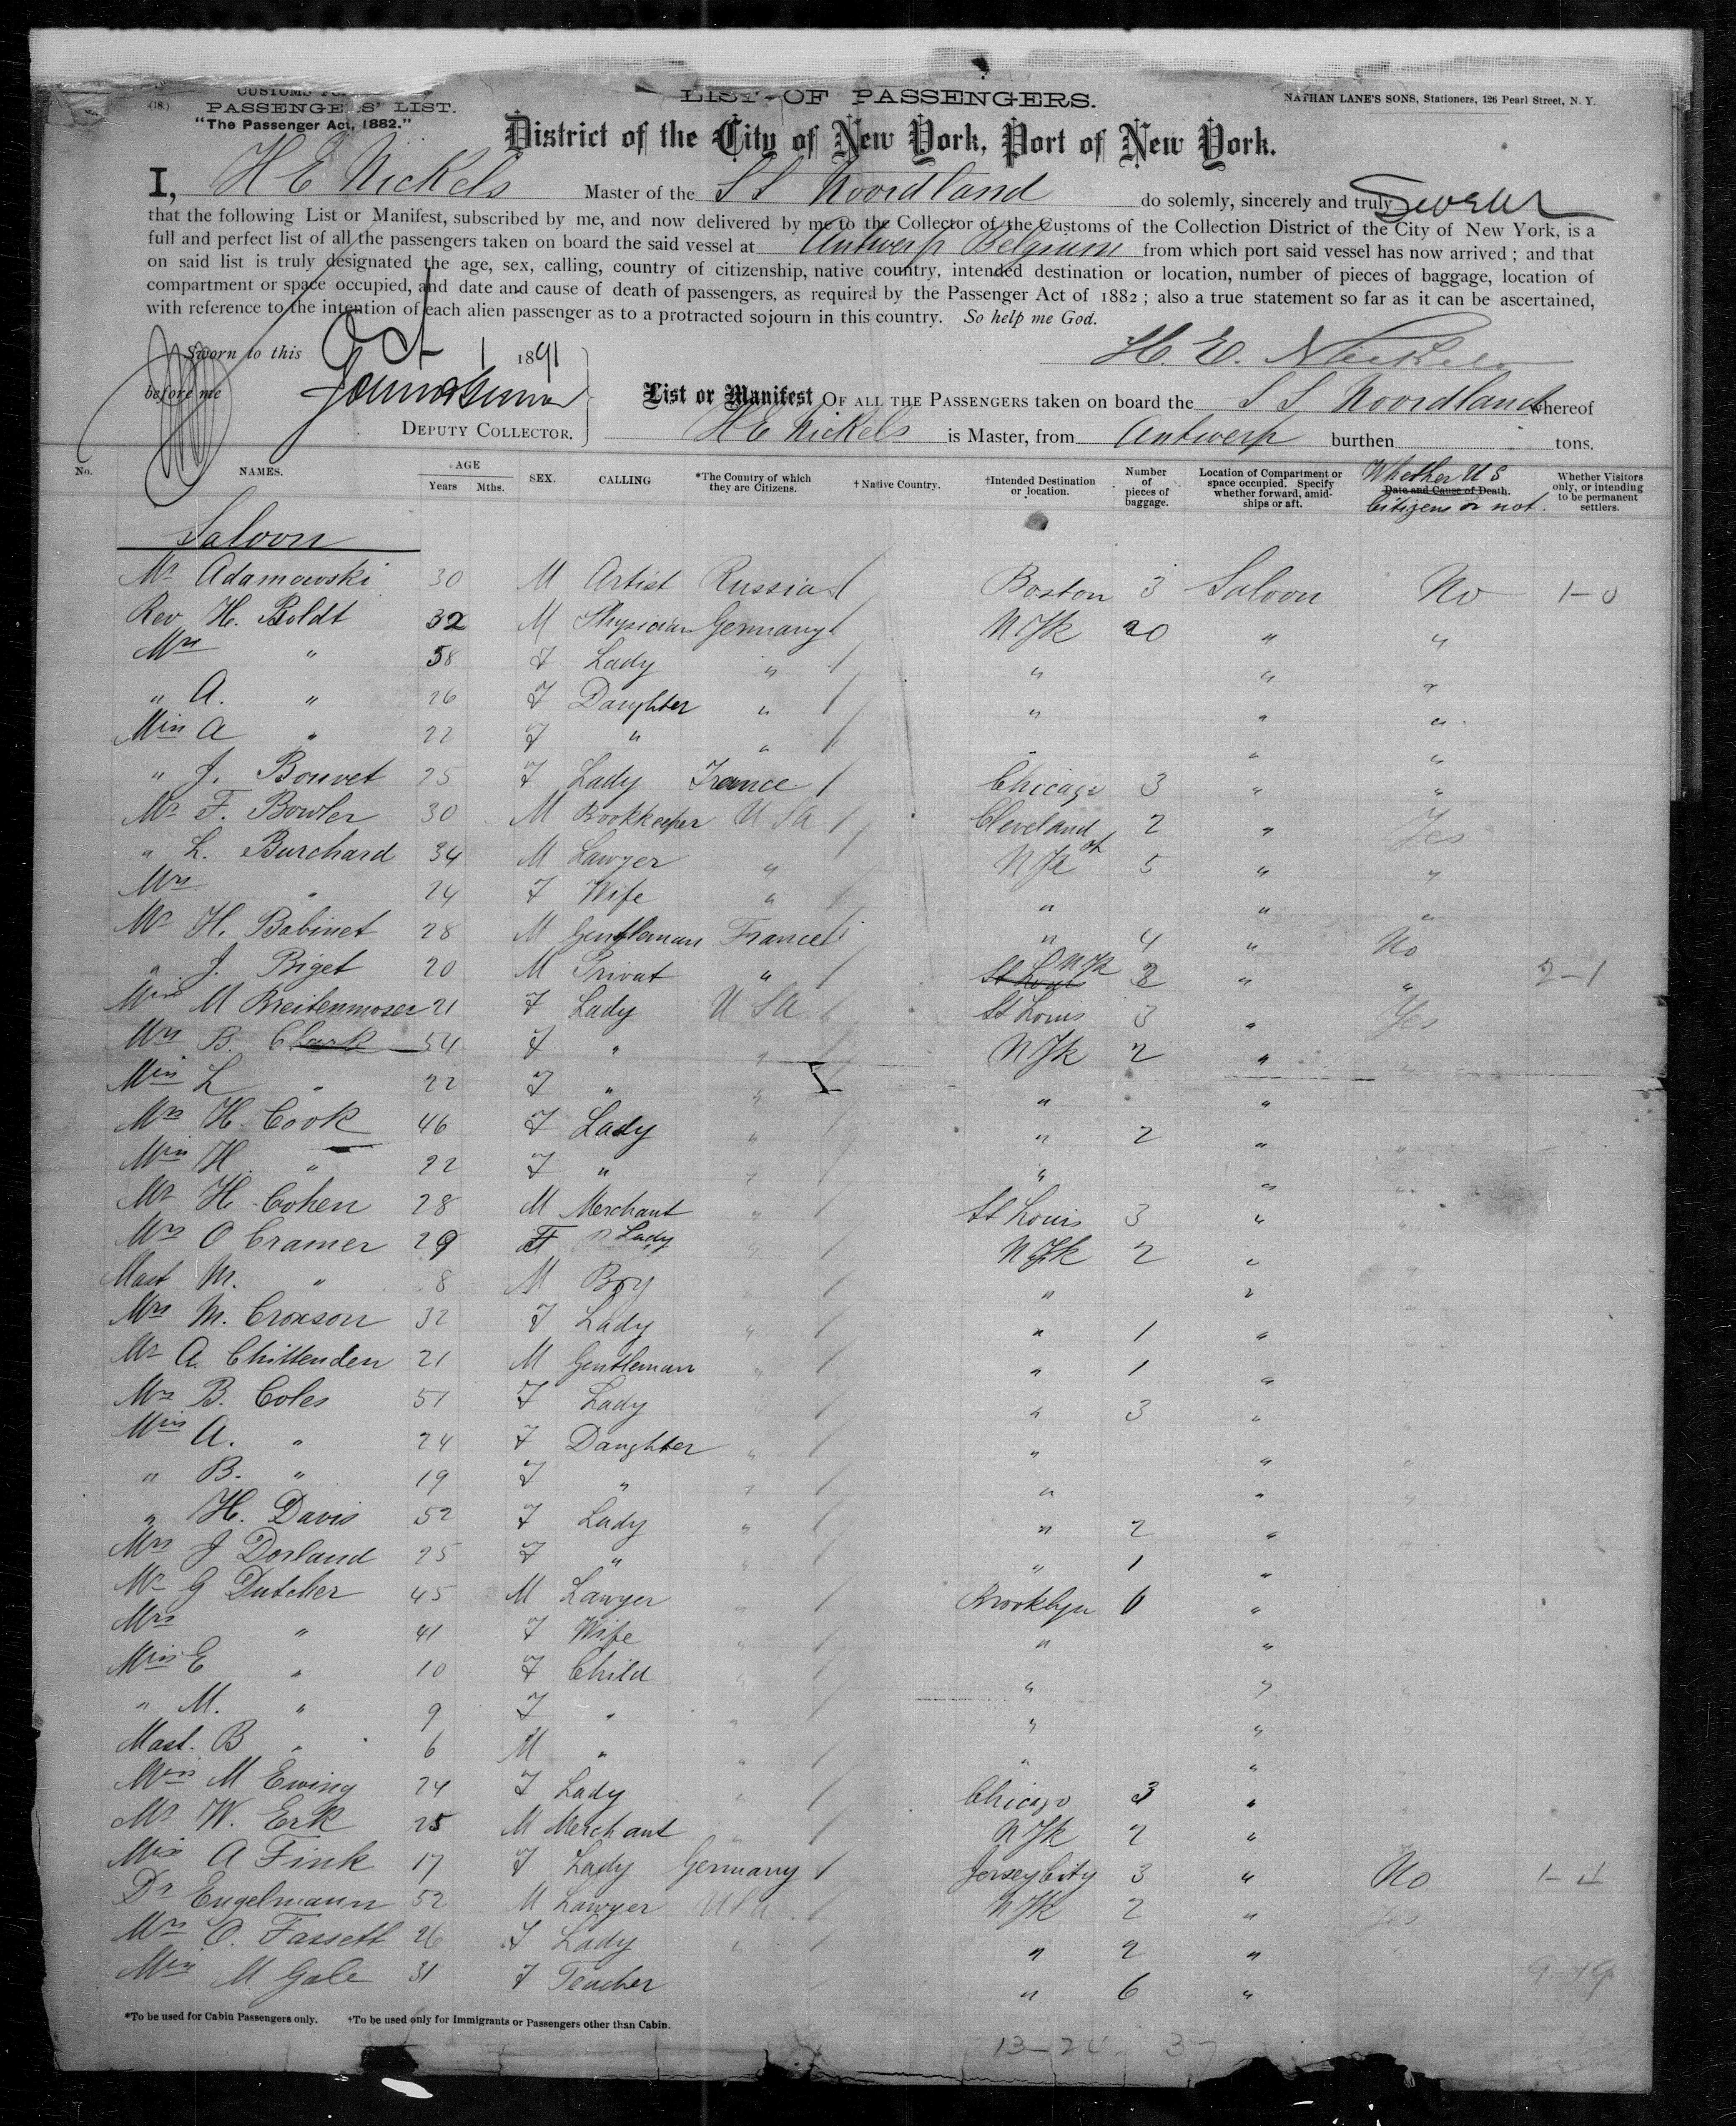 (18.)
PASSENGERS' LIST.
"The Passenger Act, 1882."
LIST OF PASSENGERS.
NATHAN LANE'S SONS, Stationers, 126 Pearl Street, N. Y.
District of the City of New York, Port of New York.
I, H E Nickels Master of the S S Noordland do solemly, sincerely and truly Swear
that the following List or Manifest, subscribed by me, and now delivered by me to the Collector of the Customs of the Collection District of the City of New York, is a
full and perfect list of all the passengers taken on board the said vessel at Antwerp Belgium from which port said vessel has now arrived ; and that
on said list is truly designated the age, sex, calling, country of citizenship, native country, intended destination or location, number of pieces of baggage, location of
compartment or space occupied, and date and cause of death of passengers, as required by the Passenger Act of 1882 ; also a true statement so far as it can be ascertained,
with reference to the intention of each alien passenger as to a protracted sojourn in this country. So help me God.
Sworn to this Oct 1 1891
H. E. Nickels
before me
DEPUTY COLLECTOR.
List or Manifest OF ALL THE PASSENGERS taken on board the S S Noordland whereof
H E Nickels is Master, from Antwerp burthen tons.
No. NAMES. AGE Years Mths. SEX. CALLING *The Country of which they are Citizens. †Native Country. †Intended Destination or location. Number of pieces of baggage. Location of Compartment or space occupied. Specify whether forward, amidships or aft. Date and Cause of Death. Whether U S Citizens or not. Whether Visitors only, or intending to be permanent settlers.
Saloon
Mr Adamowski 30 M Artist Russia Boston 3 Saloon No 1-0
Rev H. Boldt 32 M Physician Germany N Yk 20 " "
Mrs " 58 F Lady " " " "
" A. " 26 F Daughter " " " "
Miss A " 22 F " " " " "
" J. Bouvet 25 F Lady France Chicago 3 " "
Mr F. Bowler 30 M Bookkeeper U S A Cleveland oh 2 " Yes
" L. Burchard 34 M Lawyer " N Yk 5 " "
Mrs " 24 F Wife " " " "
Mr H. Babinet 28 M Gentleman France " 4 " No
" J. Biget 20 M Privat " St Louis N Yk 2 " " 2-1
Miss M Breitenmoser 21 F Lady U S A St Louis 3 " Yes
Mrs B. Clark 54 F " " N Yk 2 " "
Miss L " 22 F " " " " "
Mrs H. Cook 46 F Lady " " 2 " "
Miss H " 22 F " " " " "
Mr H. Cohen 28 M Merchant " St Louis 3 " "
Mrs O Cramer 29 F Lady " N Yk 2 " "
Mast M. " 8 M Boy " " " "
Mrs M. Croxson 32 F Lady " " 1 " "
Mr A. Chittenden 21 M Gentleman " " 1 " "
Mrs B. Coles 51 F Lady " " 3 " "
Miss A. " 24 F Daughter " " " "
" B. " 19 F " " " " "
" H. Davis 52 F Lady " " 2 " "
Mrs J Dorland 25 F " " " 1 " "
Mr G Dutcher 45 M Lawyer " Brooklyn 6 " "
Mrs " 41 F Wife " " " "
Miss E " 10 F Child " " " "
" M. " 9 F " " " " "
Mast. B " 6 M " " " " "
Miss M Ewing 24 F Lady " Chicago 3 " "
Mr W. Erk 25 M Merchant " N Yk 2 " "
Miss A Fink 17 F Lady Germany Jersey City 3 " No 1-1
Dr Engelmann 52 M Lawyer U S A N Yk 2 " Yes
Mrs O. Fassett 26 F Lady " " 2 " "
Miss M Gale 31 F Teacher " 6 "
*To be used for Cabin Passengers only. †To be used only for Immigrants or Passengers other than Cabin.
13-24 37